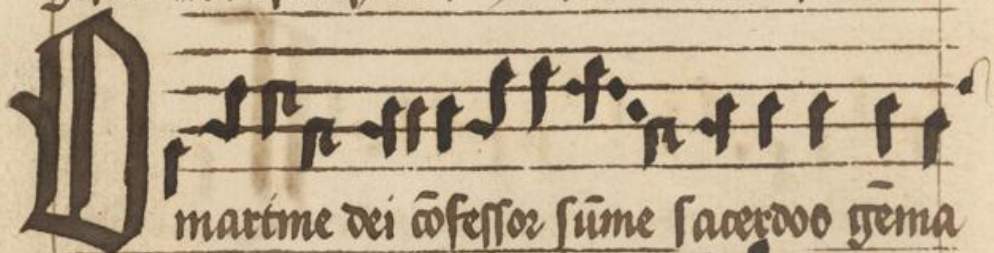 O martine dei cōfessor sūme sacerdos gēma